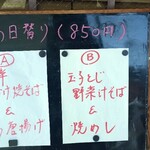 日替り(850円)
Ⓐ
け焼そば
&
揚げ
Ⓑ
玉子とじ
野菜けそば
&
焼めし